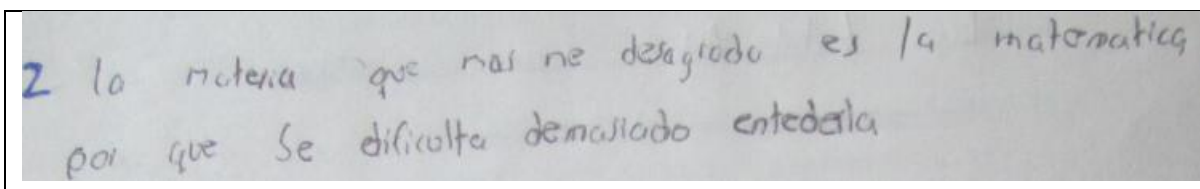 2 la materia que mas me desagrada es la matematica
por que se dificulta demasiado entederla